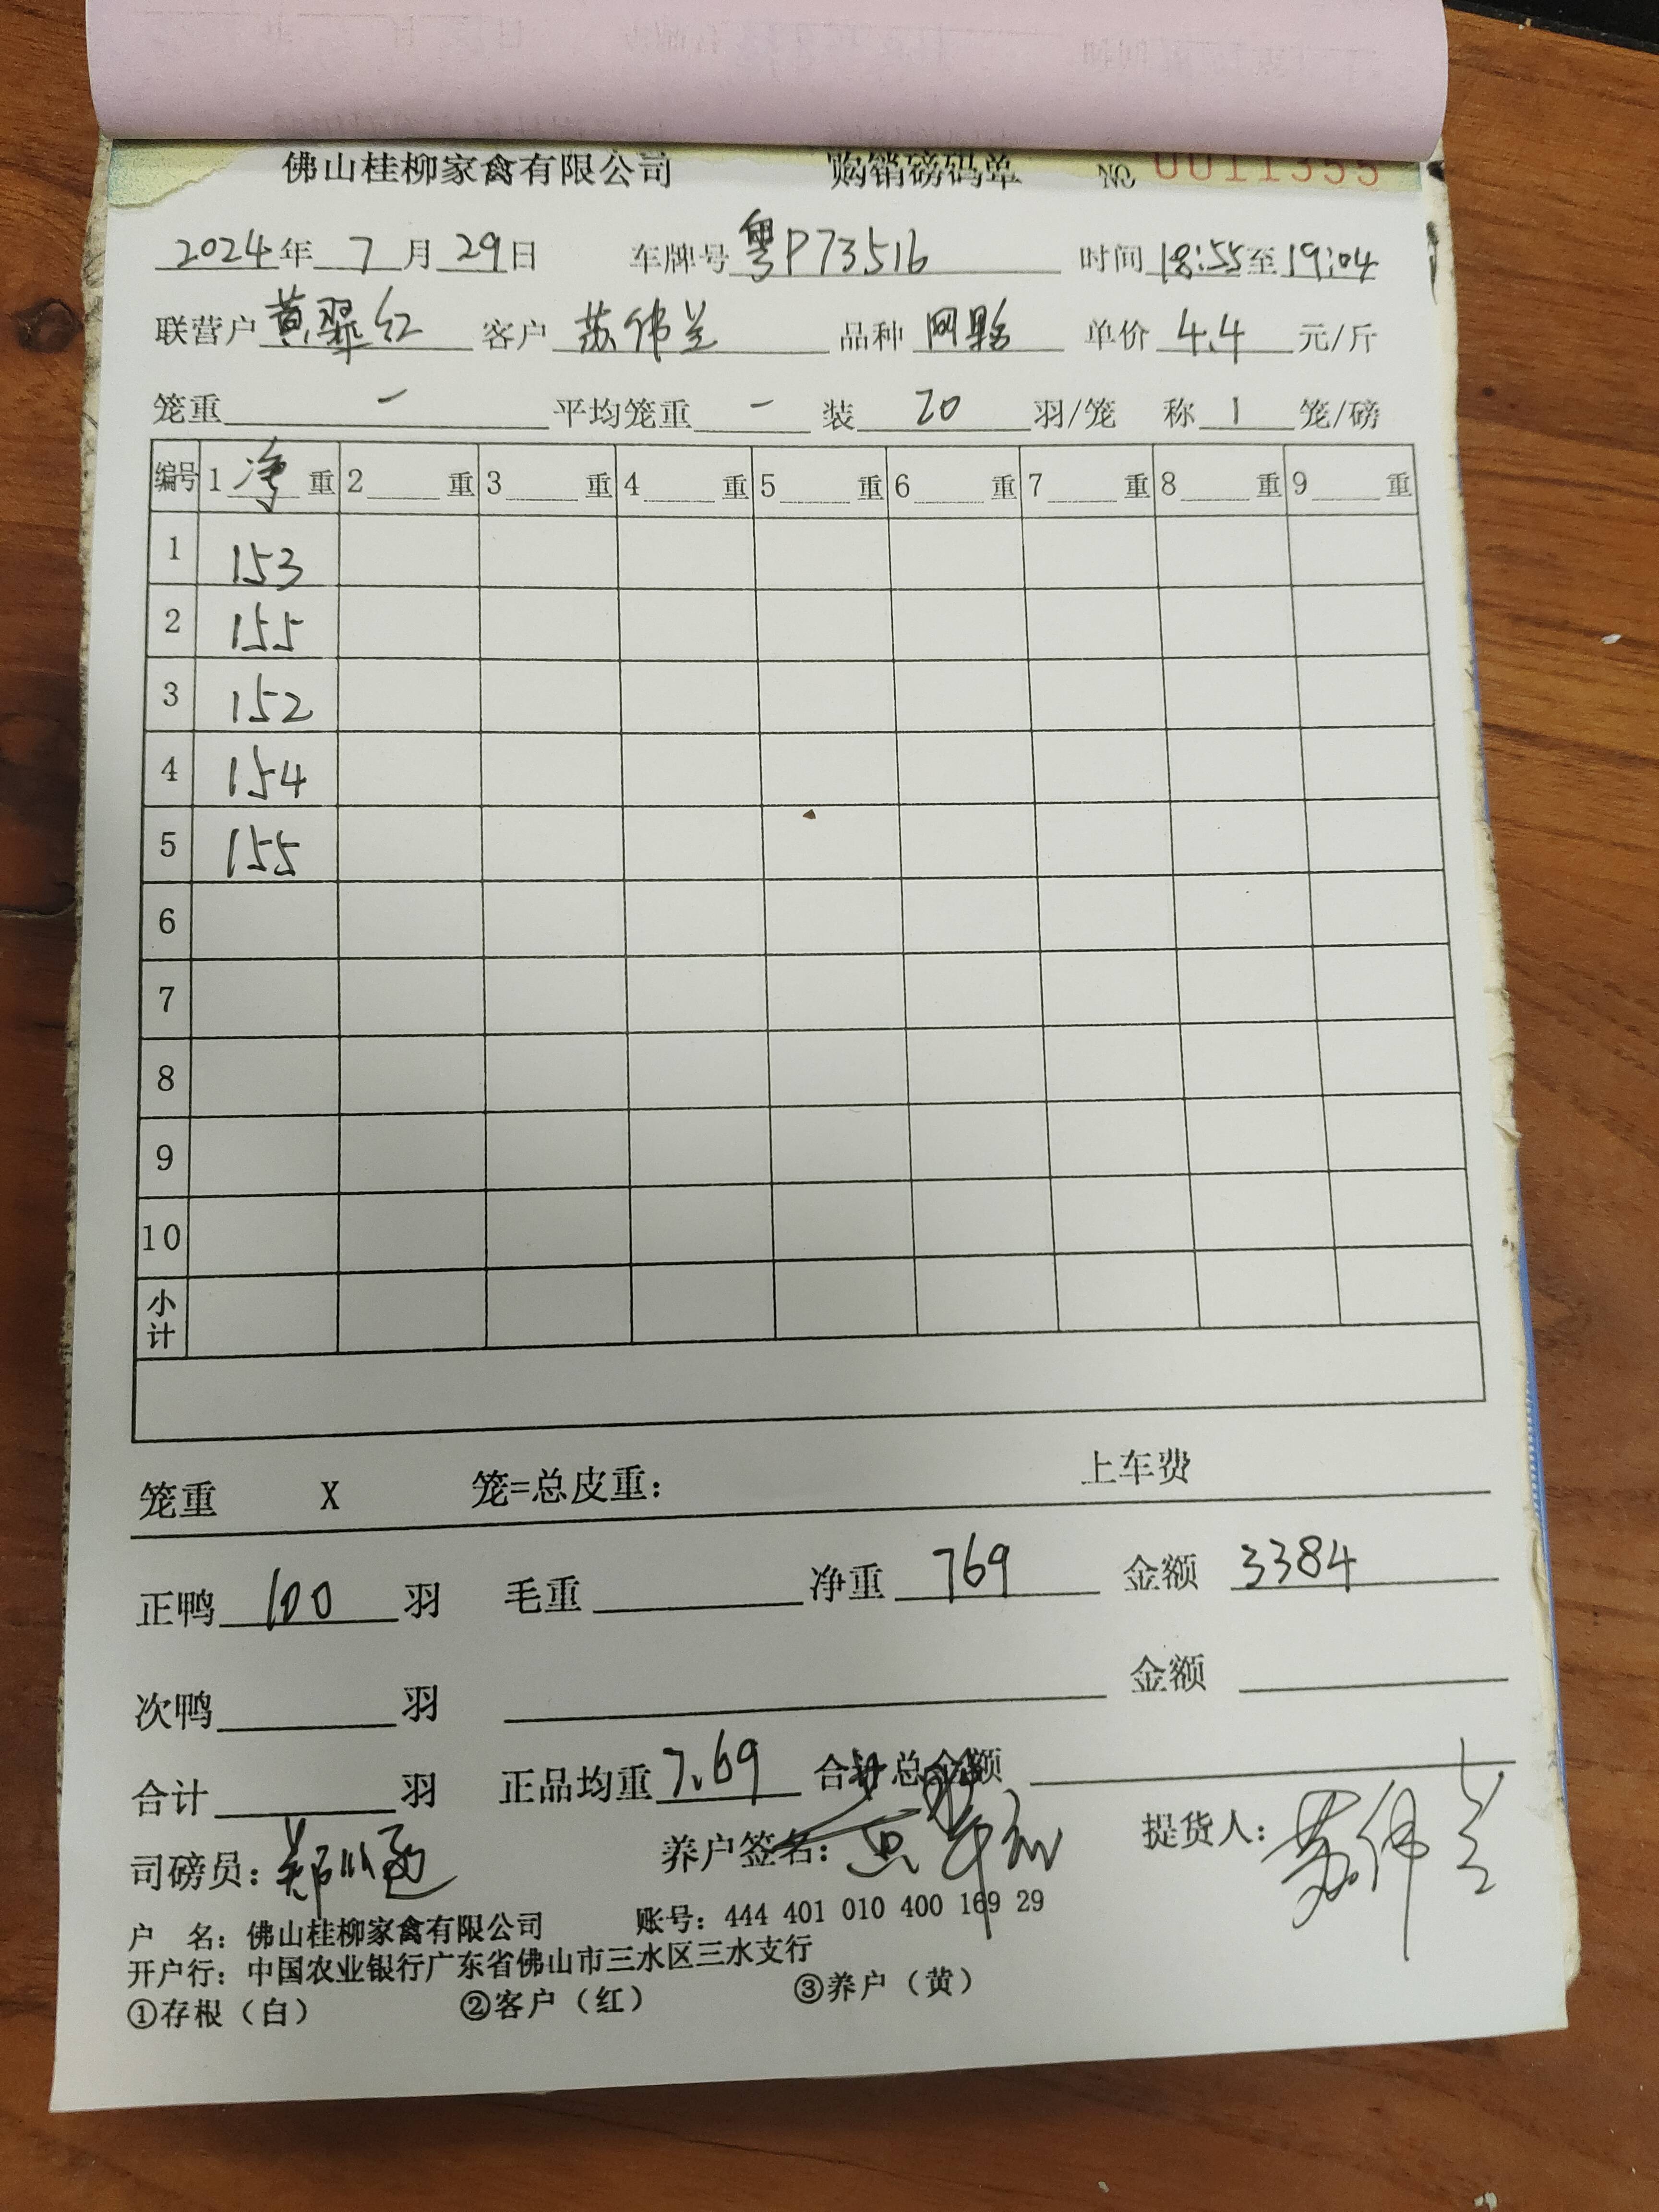 佛山桂柳家禽有限公司 购销磅码单 NO 0011355
2024年 7月 29日 车牌号 粤P73516 时间 18:55至19:04
联营户 黄翠红 客户 苏伟兰 品种 单价 4.4 元/斤
笼重 - 平均笼重 - 装 20 羽/笼 称 1 笼/磅
编号 1 净 重 2 重 3 重 4 重 5 重 6 重 7 重 8 重 9 重
1 153
2 155
3 152
4 154
5 155
6
7
8
9
10
小计
笼重 X 笼=总皮重: 上车费
正鸭 100 羽 毛重 净重 769 金额 3384
次鸭 羽 金额
合计 羽 正品均重 7.69 合计总金额
司磅员: 养户签名: 提货人: 苏伟兰
户 名: 佛山桂柳家禽有限公司 账号: 444 401 010 400 169 29
开户行: 中国农业银行广东省佛山市三水区三水支行
①存根（白） ②客户（红） ③养户（黄）